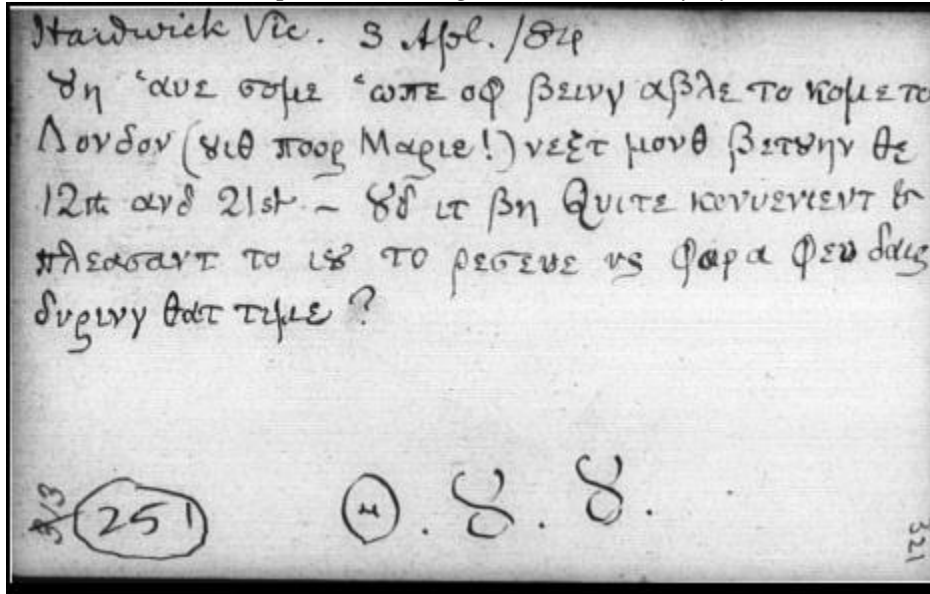 Hardwick Vic. 3 Apl. /84
ȣη ῾αυε σομε ῾ωπε οφ βεινγ αβλε το κομε το
Λονδον (ȣιθ ποορ Μαριε!) νεξτ μονθ βετȣην θε
12th ανδ 21st – ȣδ ιτ βη Qυιτε κονυενιεντ &
πλεασαντ το ιȣ το ρεσευε υς φορ α φευ δαις
δυρινγ θατ τιμε?
(Μ). Ȣ. Ȣ.
313 251
321